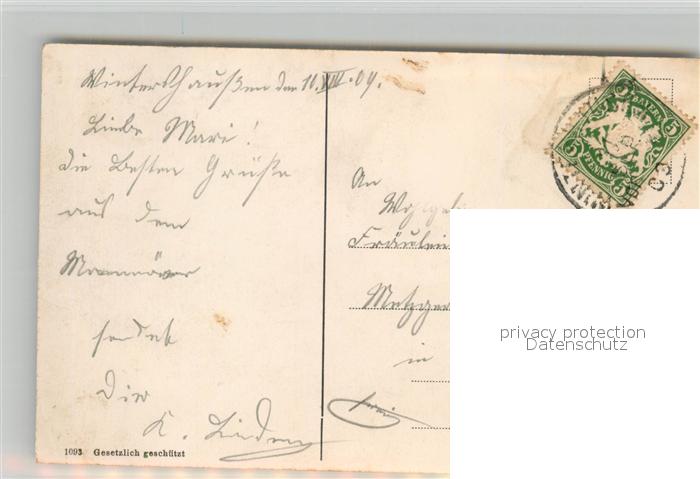 Wintershaußen den 10.VIII.09.
Liebe Mari!
die Besten Grüße
aus dem
Manöver
sendet
Dir
K. Linden
1093 Gesetzlich geschützt
An
Fräulein
Metzger
in
BAYERN
5 5
5 5
PFENNIG
privacy protection
Datenschutz